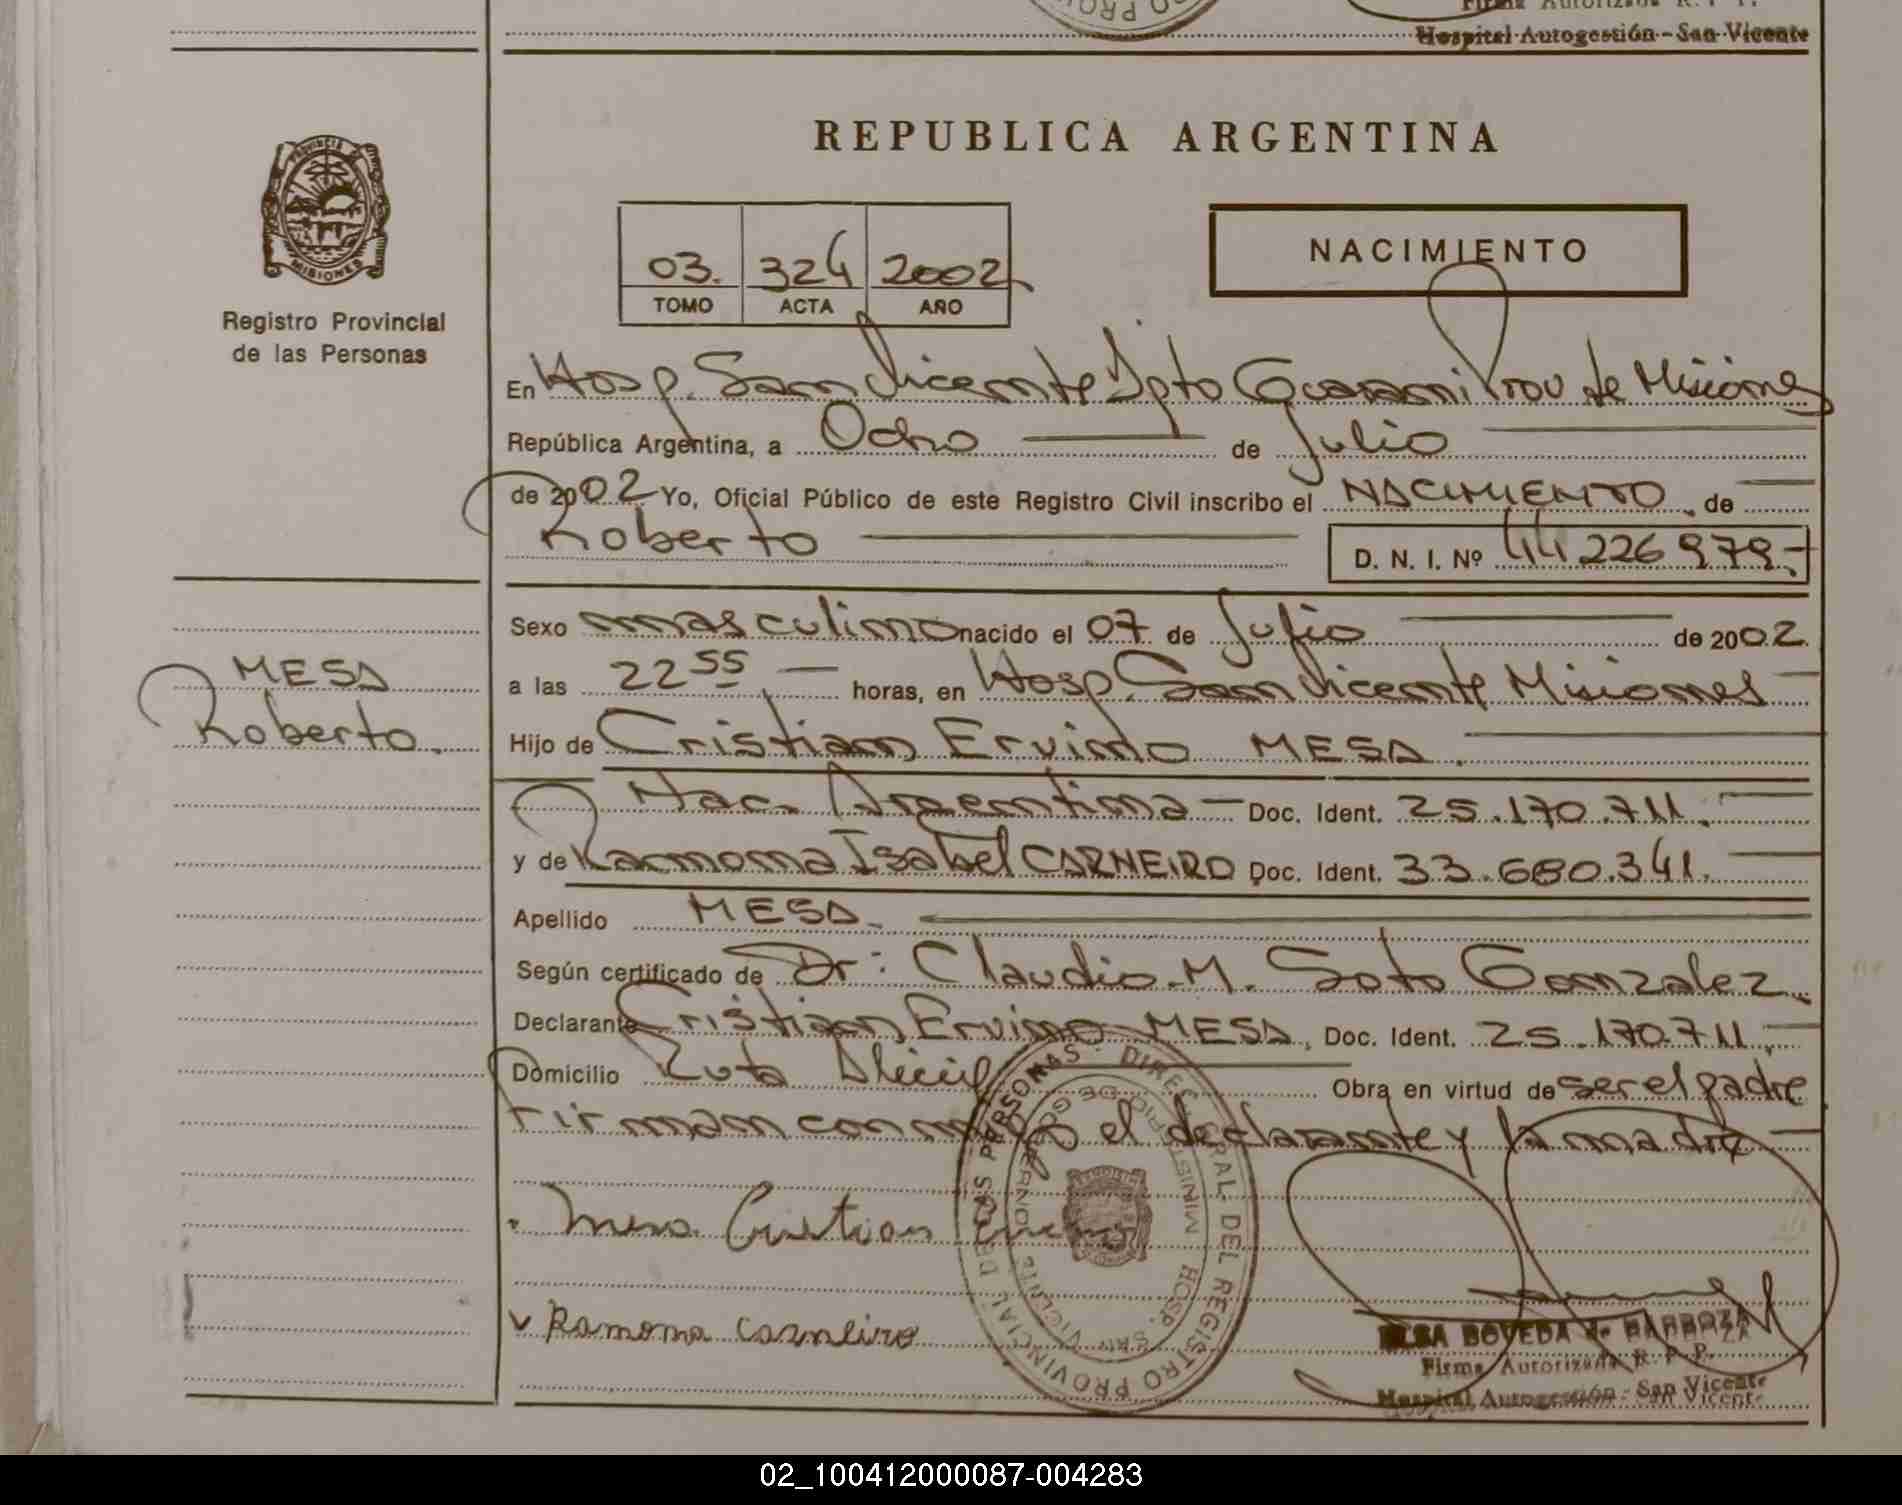 Firma Autorizada R. P. P.
Hospital Autogestión - San Vicente
REPUBLICA ARGENTINA
PROVINCIA DE MISIONES
Registro Provincial
de las Personas
03. 324 2002
TOMO ACTA AÑO
NACIMIENTO
En Hosp. San Vicente Dpto Guarani Prov de Misiones
República Argentina, a Ocho de Julio
de 2002 Yo, Oficial Público de este Registro Civil inscribo el NACIMIENTO de
Roberto
D. N. I. Nº 44 226 979.-
MESA
Roberto.
Sexo masculino nacido el 07 de Julio de 2002.
a las 22 55 horas, en Hosp. San Vicente Misiones
Hijo de Cristian Ervino MESA.
Nac. Argentina - Doc. Ident. 25.170.711.
y de Ramona Isabel CARNEIRO Doc. Ident. 33.680.341.
Apellido MESA.
Según certificado de Dr: Claudio.M. Soto Gonzalez.
Declarante Cristian Ervino MESA, Doc. Ident. 25.170.711.
Domicilio Ruta Obra en virtud de ser el padre
Firman conmigo el declarante y la madre
Mesa Cristian Ervino
Ramona Carneiro
REGISTRO PROVINCIAL DE LAS PERSONAS - DIREC. GRAL. DEL
MINISTERIO DE GOBIERNO HOSP. SAN VICENTE
ELSA BOVEDA de BARBOZA
Firma Autorizada R. P. P.
Hospital Autogestión - San Vicente
02_100412000087-004283